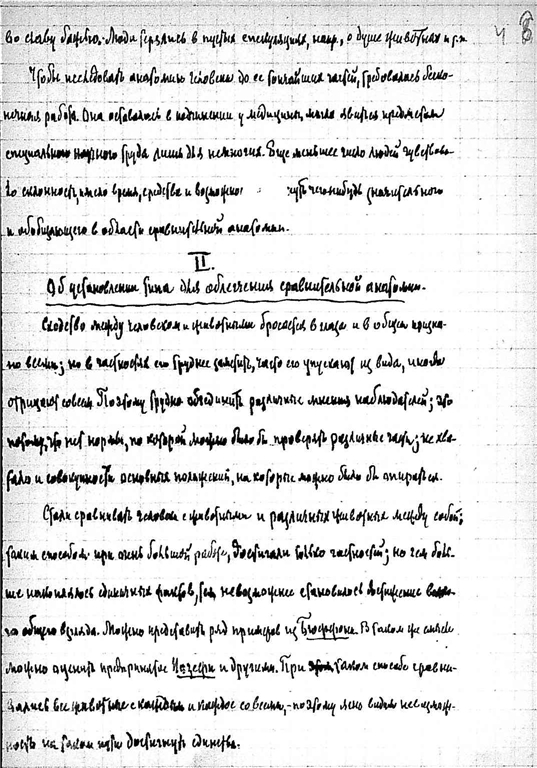 во славу божью. Люди терялись в пустых спекуляциях, напр., о душе животных и т.п. 4
Чтобы исследовать анатомию человека до ее тончайших частей, требовалась беско-
нечная работа. Она оставалась в подчинении у медицины, могла явиться предметом
специального научного труда лишь для немногих. Еще меньшее число людей чувствова-
ло склонность, имело время, средства и возможнос чуть чего-нибудь значительного
и обобщающего в области сравнительной анатомии.
II.
Об установлении типа для облегчения сравнительной анатомии.
Сходство между человеком и животными бросается в глаза и в общем призна-
но всеми; но в частностях его труднее заметить, часто его упускают из вида, иногда
отрицают совсем. Поэтому трудно объединить различные мнения наблюдателей; это
потому, что нет нормы, по которой можно было бы проверять различные части; не хва-
тало и совокупности основных положений, на которые можно было бы опираться.
Стали сравнивать человека с животными и различных животных между собой;
таким способом при очень большой работе, достигали только частностей; но чем боль-
ше накоплялось единичных фактов, тем невозможнее становилось достижение
го общего взгляда. Можно представить ряд примеров из Бюффона. В таком же смысле
можно оценить предпринятое и другими. При таком способе сравни-
вались все животные с каждым и каждое со всеми, - поэтому ясно видим невозмож-
ность на таком пути достигнуть единства.